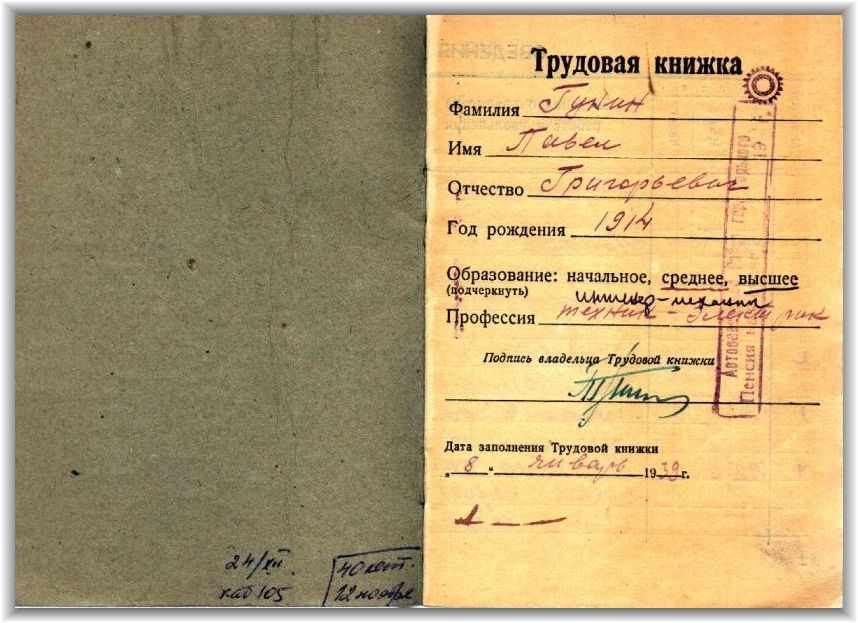 24/XII.
каб 105
12 ноября
Трудовая книжка
Фамилия Гунин
Имя Павел
Отчество Григорьевич
Год рождения 1914
Образование: начальное, среднее, высшее
(подчеркнуть)
инженер-механик
Профессия техник-электрик
Подпись владельца Трудовой книжки
Дата заполнения Трудовой книжки
„8“ январь 1939 г.
Пенсия